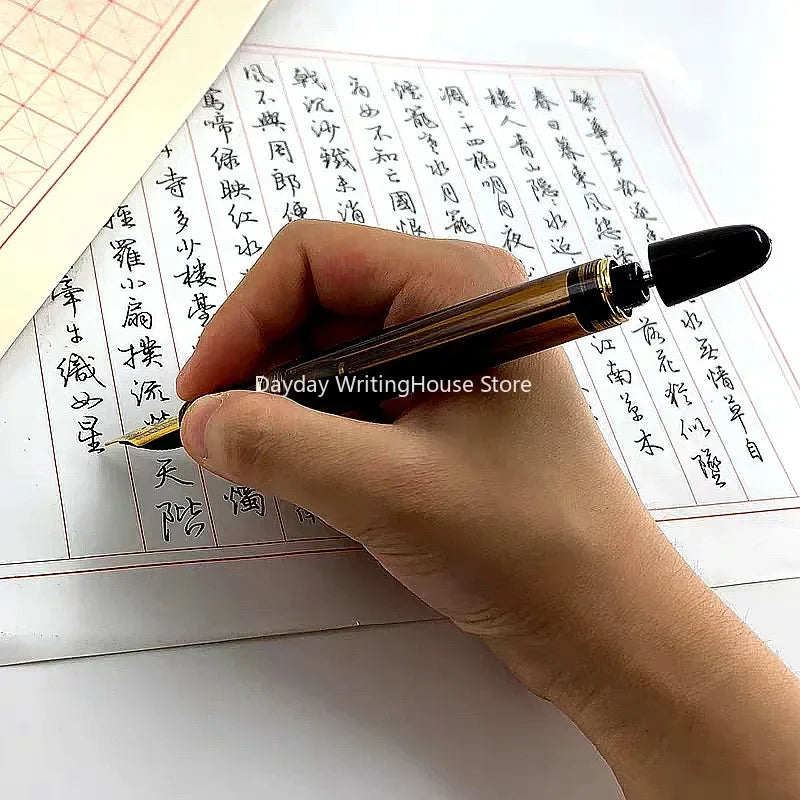 繁華事散逐 水無情草自
春日暮東風怨 落花猶似墜
樓人青山隱〻水迢 江南草木
凋二十四橋明月夜
煙籠寒水月籠
商女不知亡國恨
戟沉沙鐵未消
風不與周郎便
鶯啼綠映紅水
寺多少樓臺 燭
羅小扇撲流螢天階
牽牛織女星
Dayday WritingHouse Store